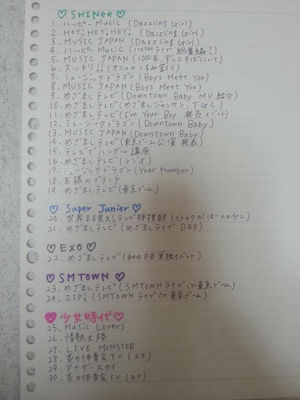 ♡ SHINee ♡
1. ハッピー Music (Dazzling Girl)
2. HEY! HEY! HEY! (Dazzling Girl)
3. MUSIC JAPAN (Dazzling Girl)
4. ハッピー Music
5. MUSIC JAPAN (1000年、ずっとそばにいて)
6. スッキリ!!
7. ミュージックドラゴン (Boys Meet You)
8. MUSIC JAPAN (Boys Meet You)
9. めざましテレビ (Downtown Baby MV 紹介)
10. めざましテレビ (めざましジャンケン, TGC)
11. めざましテレビ (I'm Your Boy 発売イベント)
12. ミュージックドラゴン (Downtown Baby)
13. MUSIC JAPAN (Downtown Baby)
14. めざましテレビ (東京ドーム公演 発表)
15. テレビでハングル講座
16. めざましテレビ
17. ミュージックドラゴン (Your Number)
18. 王様のブランチ
19. めざましテレビ (東京ドーム)
♡ Super Junior ♡
20. 世界まる見え!テレビ特捜部
21. めざましテレビ (めざましライブ D&E)
♡ EXO ♡
22. めざましテレビ (初の日本単独イベント)
♡ SMTOWN ♡
23. めざましテレビ (SMTOWN ライブ in 東京ドーム)
24. ZIP! (SMTOWN ライブ in 東京ドーム)
♡ 少女時代 ♡
25. Music Lovers
26. 情熱大陸
27. LIVE MONSTER
28. 炎の体育会TV (ユナ)
29. アイザースカイ
30. 炎の体育会TV (ユナ)